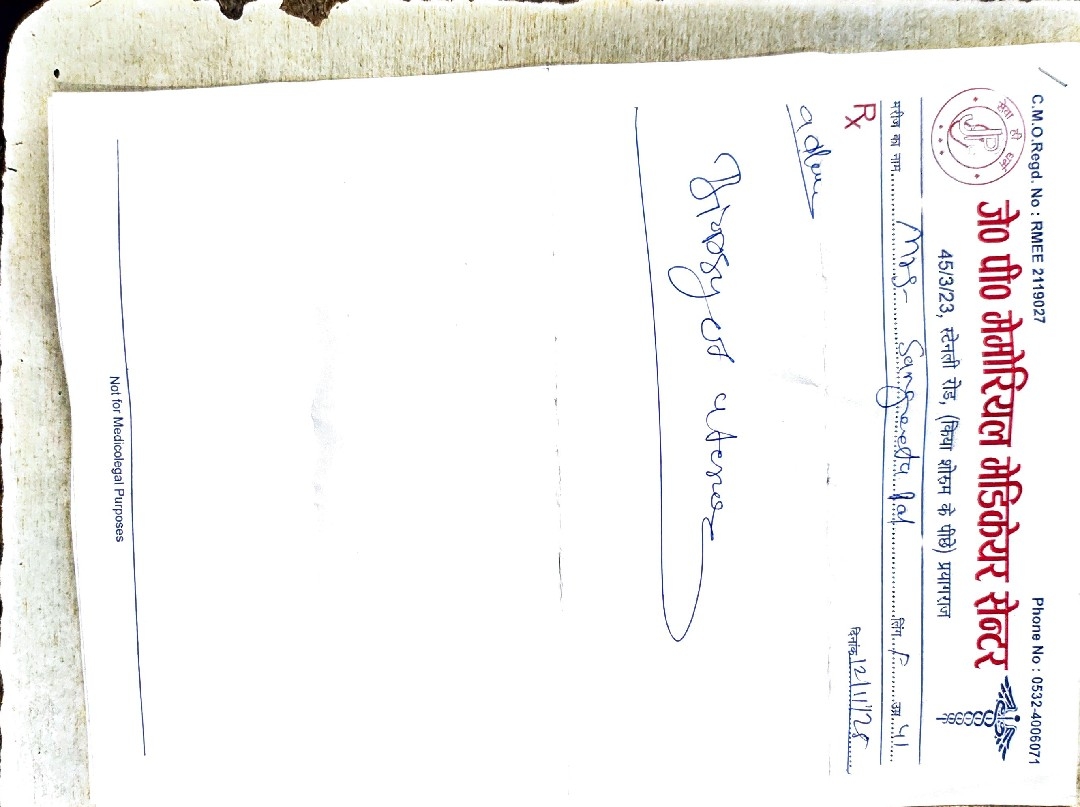 C.M.O.Regd. No : RMEE 2119027 Phone No : 0532-4006071
सेवा ही धर्म
JP
जे० पी० मेमोरियल मेडिकेयर सेन्टर
45/3/23, स्टेनली रोड, (किया शोरुम के पीछे) प्रयागराज
मरीज का नाम Mrs- Sangeeta Pal लिंग F उम्र 41
Rx दिनांक 12/11/25
adv
Biopsy of uterus
Not for Medicolegal Purposes